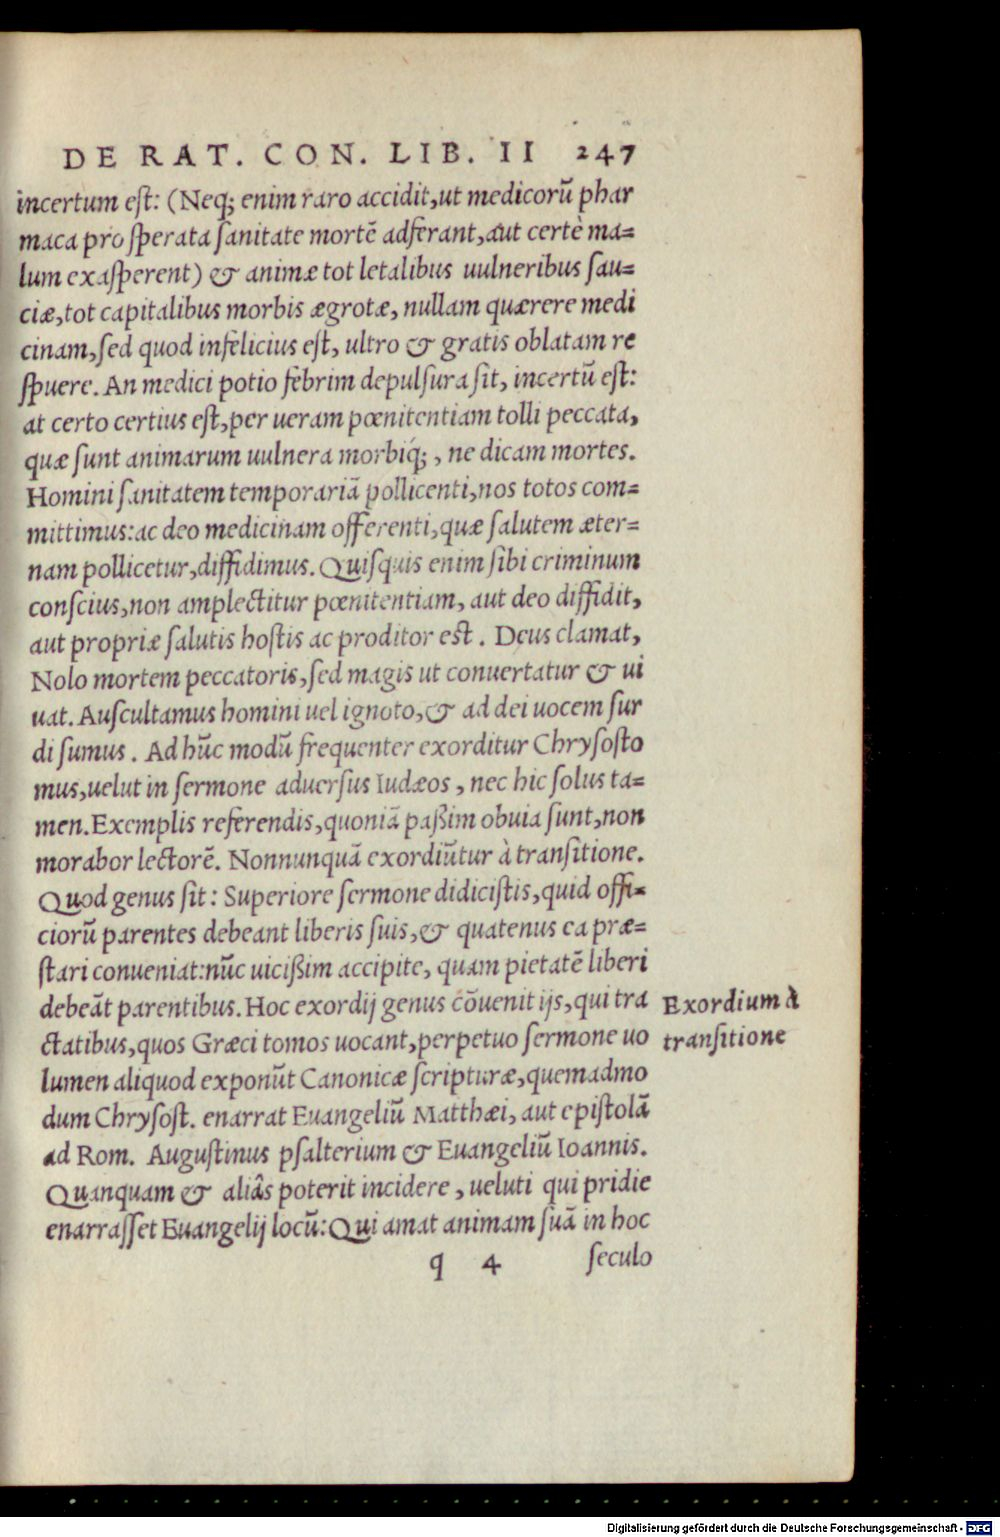 DE RAT. CON. LIB. II 247
incertum est: (Neq; enim raro accidit,ut medicorū phar
maca pro sperata sanitate mortē adferant,aut certè ma=
lum exasperent) & animæ tot letalibus uulneribus sau=
ciæ,tot capitalibus morbis ægrotæ, nullam quærere medi
cinam,sed quod infelicius est, ultro & gratis oblatam re
spuere. An medici potio febrim depulsura sit, incertū est:
at certo certius est,per ueram pœnitentiam tolli peccata,
quæ sunt animarum uulnera morbiq́;, ne dicam mortes.
Homini sanitatem temporariā pollicenti,nos totos com=
mittimus:ac deo medicinam offerenti,quæ salutem æter=
nam pollicetur,diffidimus. Quisquis enim sibi criminum
conscius,non amplectitur pœnitentiam, aut deo diffidit,
aut propriæ salutis hostis ac proditor est. Deus clamat,
Nolo mortem peccatoris,sed magis ut conuertatur & ui
uat. Auscultamus homini uel ignoto,& ad dei uocem sur
di sumus. Ad hūc modū frequenter exorditur Chrysosto
mus,uelut in sermone aduersus Iudæos, nec hic solus ta=
men.Exemplis referendis,quoniā paßim obuia sunt,non
morabor lectorē. Nonnunquā exordiūtur à transitione.
Quod genus sit: Superiore sermone didicistis,quid offi=
ciorū parentes debeant liberis suis,& quatenus ea præ=
stari conueniat:nūc uicißim accipite, quam pietatē liberi
debeāt parentibus. Hoc exordij genus cōuenit ijs,qui tra
ctatibus,quos Græci tomos uocant,perpetuo sermone uo
lumen aliquod exponūt Canonicæ scripturæ,quemadmo
dum Chrysost. enarrat Euangeliū Matthæi, aut epistolā
ad Rom. Augustinus psalterium & Euangeliū Ioannis.
Quanquam & aliâs poterit incidere, ueluti qui pridie
enarrasset Euangelij locū: Qui amat animam suā in hoc
q 4 seculo
Exordium à
transitione
Digitalisierung gefördert durch die Deutsche Forschungsgemeinschaft - DFG